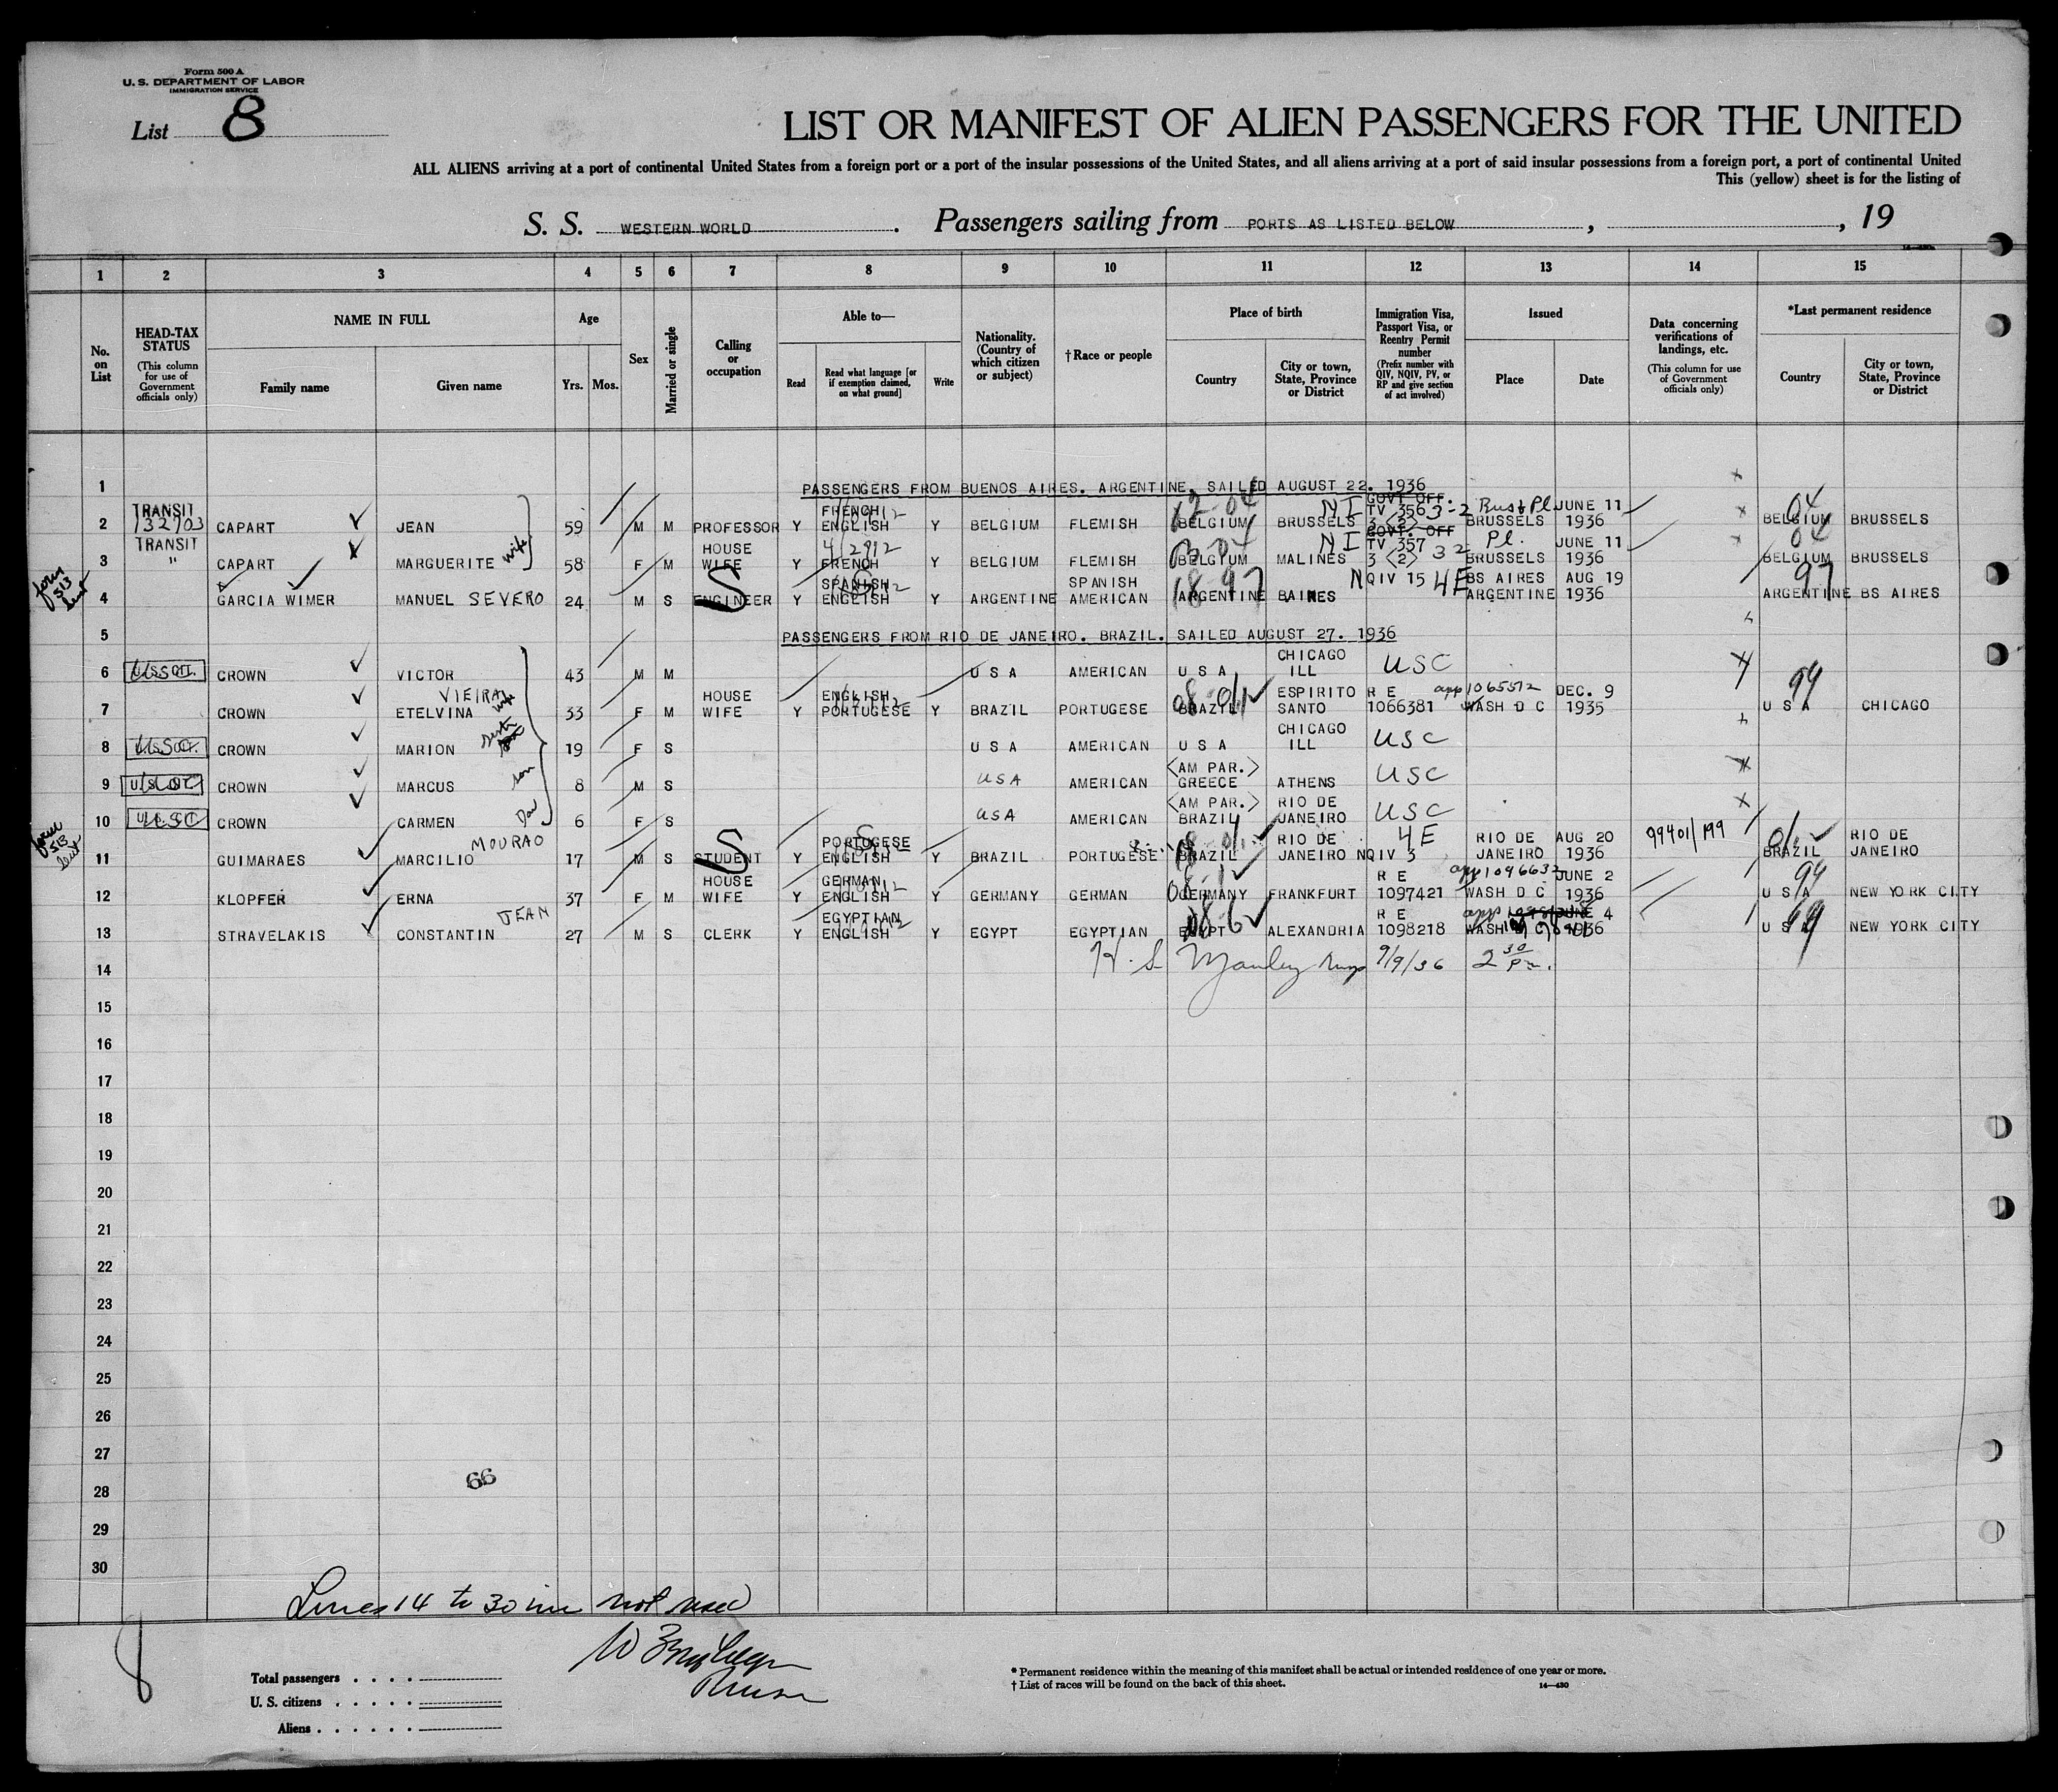 Form 500 A
U. S. DEPARTMENT OF LABOR
IMMIGRATION SERVICE
List 8
LIST OR MANIFEST OF ALIEN PASSENGERS FOR THE UNITED
ALL ALIENS arriving at a port of continental United States from a foreign port or a port of the insular possessions of the United States, and all aliens arriving at a port of said insular possessions from a foreign port, a port of continental United
This (yellow) sheet is for the listing of
S. S. WESTERN WORLD . Passengers sailing from PORTS AS LISTED BELOW , , 19
1 2 3 4 5 6 7 8 9 10 11 12 13 14 15
No. on List
HEAD-TAX STATUS (This column for use of Government officials only)
NAME IN FULL Family name Given name
Age Yrs. Mos.
Sex
Married or single
Calling or occupation
Able to— Read Read what language [or if exemption claimed, on what ground] Write
Nationality. (Country of which citizen or subject)
† Race or people
Place of birth Country City or town, State, Province or District
Immigration Visa, Passport Visa, or Reentry Permit number (Prefix number with QIV, NQIV, PV, or RP and give section of act involved)
Issued Place Date
Data concerning verifications of landings, etc. (This column for use of Government officials only)
*Last permanent residence Country City or town, State, Province or District
1 PASSENGERS FROM BUENOS AIRES. ARGENTINE, SAILED AUGUST 22. 1936
2 TRANSIT 132703 CAPART JEAN 59 M M PROFESSOR Y FRENCH ENGLISH Y BELGIUM FLEMISH BELGIUM BRUSSELS NI GOVT OFF. TV 356 3 <2> 3-2 BRUSSELS JUNE 11 1936 04 BELGIUM BRUSSELS
3 TRANSIT " CAPART MARGUERITE wife 58 F M HOUSE WIFE Y FRENCH Y BELGIUM FLEMISH BELGIUM MALINES NI GOVT. OFF TV 357 3 <2> 32 Pl. BRUSSELS JUNE 11 1936 04 BELGIUM BRUSSELS
form 513 4 GARCIA WIMER MANUEL SEVERO 24 M S ENGINEER S Y SPANISH ENGLISH Y ARGENTINE SPANISH AMERICAN ARGENTINE 18-97 BAIRES NQIV 15 4E BS AIRES ARGENTINE AUG 19 1936 97 ARGENTINE BS AIRES
5 PASSENGERS FROM RIO DE JANEIRO. BRAZIL. SAILED AUGUST 27. 1936
6 CROWN VICTOR 43 M M U S A AMERICAN U S A CHICAGO ILL USC
7 CROWN ETELVINA VIEIRA wife 33 F M HOUSE WIFE Y ENGLISH PORTUGESE Y BRAZIL PORTUGESE BRAZIL ESPIRITO SANTO R E 1066381 app 1065512 WASH D C DEC. 9 1935 99 U S A CHICAGO
8 CROWN MARION 19 F S U S A AMERICAN U S A CHICAGO ILL USC
9 CROWN MARCUS son 8 M S USA AMERICAN <AM PAR.> GREECE ATHENS USC
10 USC CROWN CARMEN Dau 6 F S USA AMERICAN <AM PAR.> BRAZIL RIO DE JANEIRO USC
form 513 11 GUIMARAES MARCILIO MOURAO 17 M S STUDENT S Y PORTUGESE ENGLISH Y BRAZIL PORTUGESE BRAZIL RIO DE JANEIRO NQIV 3 4E RIO DE JANEIRO AUG 20 1936 99401/199 BRAZIL RIO DE JANEIRO
12 KLOPFER ERNA 37 F M HOUSE WIFE Y GERMAN ENGLISH Y GERMANY GERMAN GERMANY FRANKFURT R E 1097421 WASH D C JUNE 2 1936 99 U S A NEW YORK CITY
13 STRAVELAKIS CONSTANTIN JEAN 27 M S CLERK Y EGYPTIAN ENGLISH Y EGYPT EGYPTIAN EGYPT ALEXANDRIA R E 1098218 WASH D C JUNE 4 1936 99 U S A NEW YORK CITY
14 H. S. Manley 9/9/36 2 30 pm.
15
16
17
18
19
20
21
22
23
24
25
26
27
28
29
30
66
Lines 14 to 30 inc not used
8
Total passengers . . . .
U. S. citizens . . . . .
Aliens . . . . . .
* Permanent residence within the meaning of this manifest shall be actual or intended residence of one year or more.
† List of races will be found on the back of this sheet.
14—430